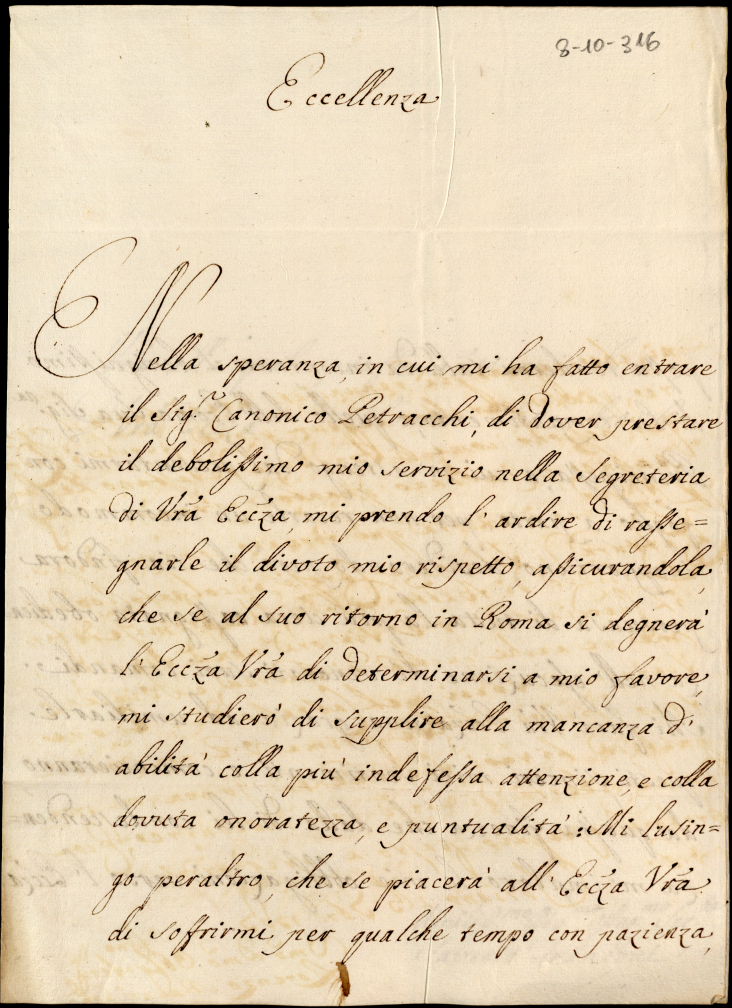 8-10-316
Eccellenza
Nella speranza, in cui mi ha fatto entrare
il Sig.r Canonico Petracchi, di dover prestare
il debolissimo mio servizio nella Segreteria
di Vrã Eccza, mi prendo l'ardire di rasse=
gnarle il divoto mio rispetto, assicurandola,
che se al suo ritorno in Roma si degnerà
l'Eccza Vrã di determinarsi a mio favore,
mi studierò di supplire alla mancanza d'
abilità colla più indefessa attenzione, e colla
dovuta onoratezza, e puntualità: Mi lusin=
go peraltro, che se piacerà all'Eccza Vrã
di soffrirmi per qualche tempo con pazienza,